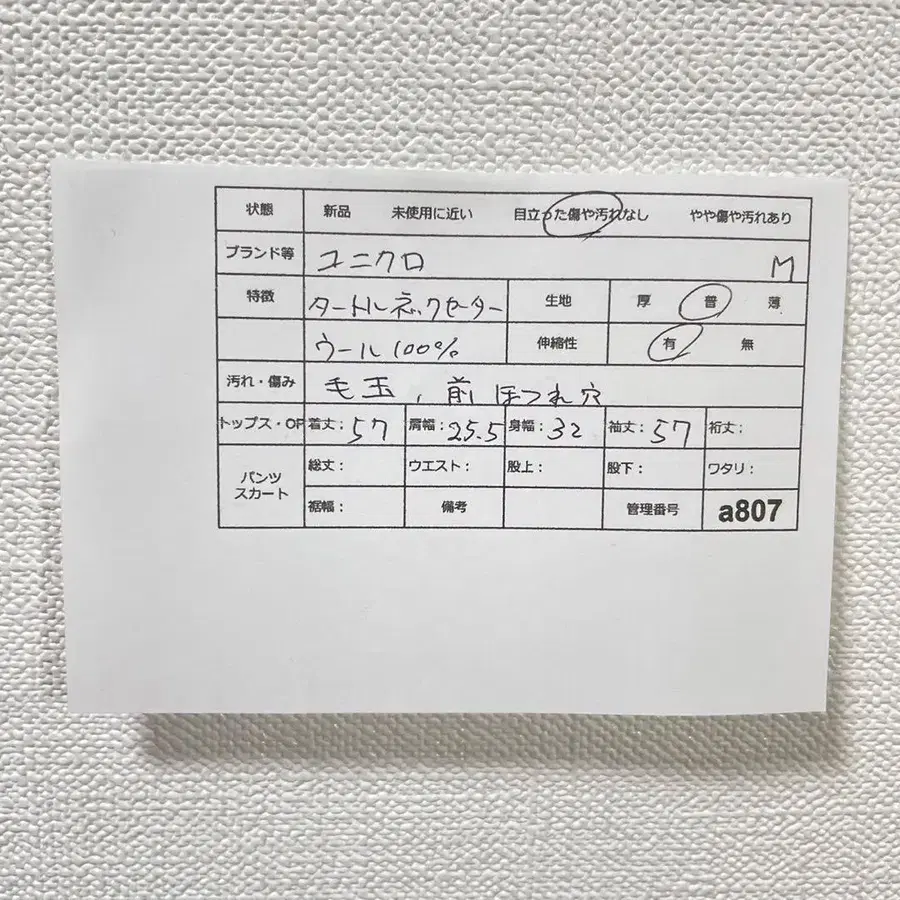 状態 新品 未使用に近い 目立った傷や汚れなし やや傷や汚れあり
ブランド等 ユニクロ M
特徴 タートルネックセーター 生地 厚 普 薄
ウール100% 伸縮性 有 無
汚れ・傷み 毛玉, 前 ほつれ穴
トップス・OP 着丈:57 肩幅:25.5 身幅:32 袖丈:57 裄丈:
パンツ 総丈: ウエスト: 股上: 股下: ワタリ:
スカート 裾幅: 備考 管理番号 a807